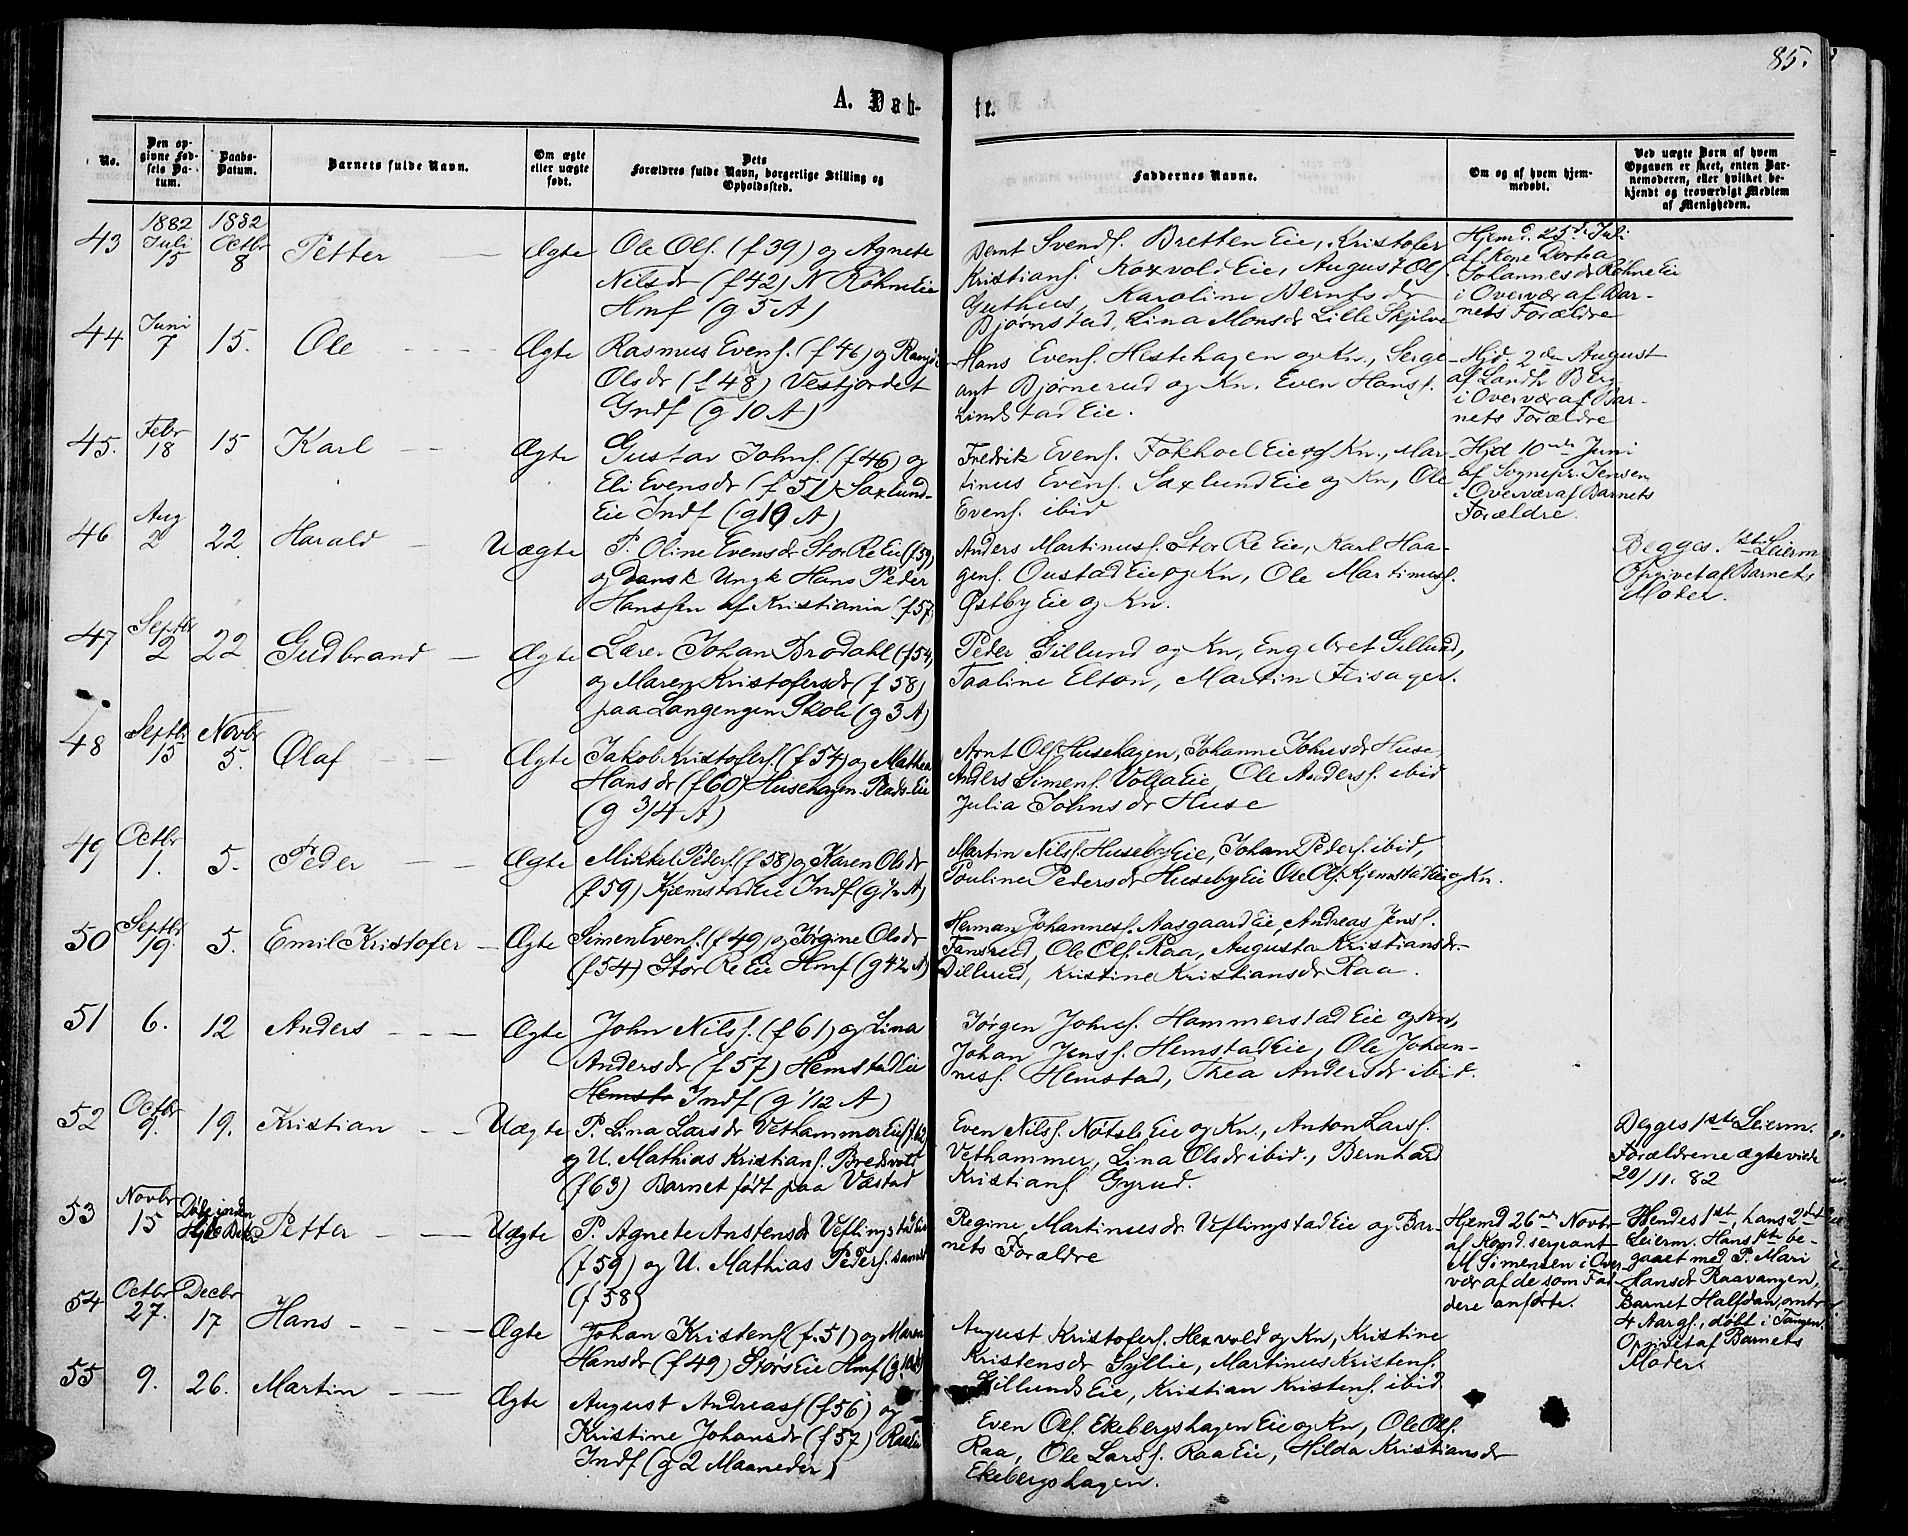 85.
A. Døbte.
No.
Den opgivne Fødsels Datum.
Daabs-Datum.
Barnets fulde Navn.
Om ægte eller uægte født.
Dets Forældres fulde Navn, borgerlige Stilling og Opholdssted.
Faddernes Navne.
Om og af hvem hjemmedøbt.
Ved uægte Børn af hvem Opgaven er skeet, enten Barnemoderen, eller hvilket bekjendt og troværdigt Medlem af Menigheden.
43 1882 Juli 15 1882 Octbr 8 Petter Ægte
Ole Ols. (f 39) og Agnete
Nilsdr (f 42) N Røhne Eie
Hmf (g 5 A)
Bernt Svends. Bretten Eie, Kristofer
Kristians. Koxvold Eie, August Ols.
Guthus, Karoline Berntsdr
Bjørnstad, Lina Monsdr Lille Skjelve
Hjemd. 25de Juli
af Kone Dortea
Johannesdr Røhne Eie
i Overvær af Bar-
nets Forældre
44 Juni 7 15. Ole Ægte
Rasmus Evens. (f 46) og
Olsdr (f 48) Vestjordet
Indf (g 10 A)
Hans Evens. Hestehagen og Kn., Serge-
ant Bjørnerud og Kn. Even Hans s.
Lindstad Eie.
Hjd. 2den August
af Landh. Berg
i Overvær af Bar-
nets Forældre
45. Febr 18 15 Karl Ægte
Gustav Johns. (f 46) og
Eli Evensdr (f 51) Saxlund-
Eie Indf (g 10 A)
Fredrik Evens. Fokhoel Eie og Kn., Mar-
tinus Evens. Saxlund Eie og Kn, Ole
Evens. ibid
Hjd 10de Juni
af Sognepr. Jensen
i Overvær af Barnets
Forældre.
46 Aug 2 22 Harald Uægte
P. Oline Evensdr Stor Re Eie (f 59)
og Dansk Ungk Hans Peder
Hanssen af Kristiania (f 57)
Anders Martinus s. Stor Re Eie, Karl Haa-
gens. Oustad Eie og Kn, Ole Martinus s.
Østby Eie og Kn.
Begges 1ste Leierm
Opgivet af Barnets
Moder.
47 Septbr 2 22 Gudbrand Ægte
Lærer Johan Brodahl (f 54)
og Maren Kristofersdr (f 58)
paa Langengen Skole (g 3 A)
Peder Gillund og Kn, Engebret Gillund,
Paaline Elton, Martin Flisager.
48 Septbr 15 Novbr 5. Olaf Ægte
Jakob Kristofers. (f 54) og Mathea
Hansdr (f 60) Husehagen Plads Eie
(g 3/4 A)
Arnt Ols. Husehagen, Johanne Johnsdr Huse
Anders Simens. Volla Eie, Ole Anders s. ibid
Julia Johnsdr Huse
49 Octbr 1. 5. Peder Ægte
Mikkel Peders. (f 58) og Karen Olsdr
(f 59) Kjemstad Eie Indf (g 1/2 A)
Martin Nils s. Huseby Eie, Johan Peders. ibid,
Pouline Pedersdr Huseby Eie Ole Ols. Kjemstad Eie og Kn.
50 Septbr 19. 5. Emil Kristofer Ægte
Simen Evens. (f 49) og Jørgine Olsdr
(f 54) Stor Re Eie Hmf (g 42 A)
Herman Johannes s. Aasgaard Eie, Andreas Jens s.
Fansrud, Ole Ols. Raa, Augusta Kristiansdr
Dillerud, Kristine Kristiansdr Raa.
51 6. 12 Anders Ægte
John Nils s. (f 61) og Lina
Andersdr (f 57) Hemstad Eie
Indf (g 1/12 A)
Jørgen Johns. Hammerstad Eie og Kn,
Johan Jens s. Hemstad Eie, Ole Johan-
nes s. Hemstad, Thea Andersdr ibid.
52 Octbr 9. 19. Kristian Uægte
P. Lina Larsdr Vethammer Eie (f 62)
og U. Mathias Kristians. Bredvold
(f 63) Barnet født paa Væstad
Even Nils s. Nøtsle Eie og Kn., Anton Lars s.
Vethammer, Lina Olsdr ibid., Bernhard
Kristians. Gyrud.
Begges 1ste Leierm.
Forældrene ægteviede
20/11. 82
53 Novbr 15 Petter Uægte
P. Agnete Anstensdr Veflingstad Eie
(f 59) og U. Mathias Peders.
(f 58)
Regine Martinusdr Veflingstad Eie og Bar-
nets Forældre
Hjemd 26de Novbr
af Komd. sergeant
M Simensen i Over-
vær af de som Fad-
dere anførte.
Hendes 1ste, hans 2det
Leierm. Hans 1ste be-
gaaet med P. Mari
Hansdr Raavangen,
Barnet Halfdan, omtr
4 Aar g., døbt i Tangen.
Opgivet af Barnets
Moder.
54 Octbr 27. Decbr 17 Hans Ægte
Johan Kristens. (f. 51) og Maren
Hansdr (f 49) Størs Eie Hmf
August Kristofers. Hexvold og Kn, Kristine
Kristensdr Syllie, Martinus Kristens.
Gillunds Eie, Kristian Kristens. ibid
55 9. 26. Martin Ægte
August Andreas s. (f 56) og
Kristine Johansdr (f 57) Raa Eie
Indf (g 2 Maaneder)
Even Ols. Ekebergshagen Eie og Kn, Ole Ols.
Raa, Ole Lars s. Raa Eie, Hilda Kristiansdr
Ekebergshagen.